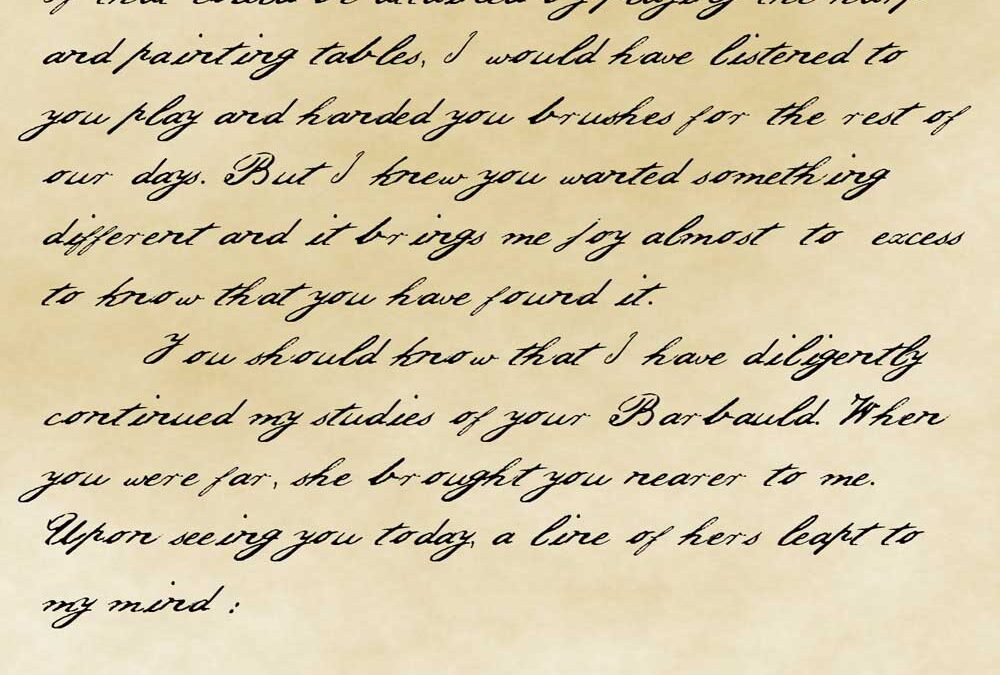 of that could be attained by playing the harp
and painting tables, I would have listened to
you play and handed you brushes for the rest of
our days. But I knew you wanted something
different and it brings me joy almost to excess
to know that you have found it.
You should know that I have diligently
continued my studies of your Barbauld. When
you were far, she brought you nearer to me.
Upon seeing you today, a line of hers leapt to
my mind :